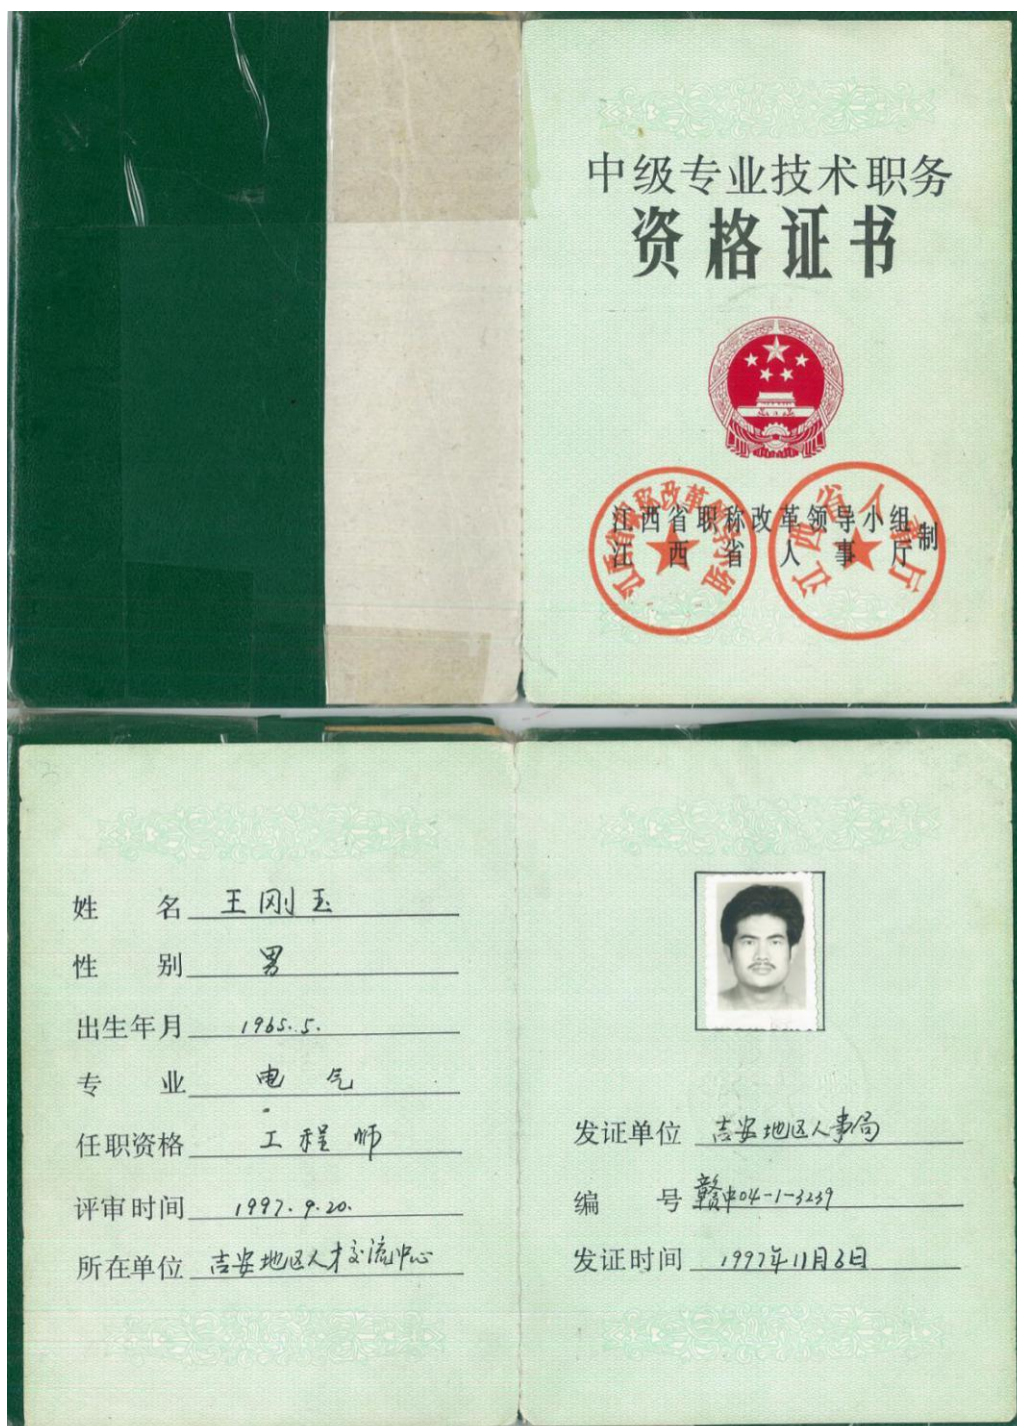 中级专业技术职务
资格证书
江西省职称改革领导小组
江西省人事厅 制
江西省职称改革领导小组
江西省人事厅
姓 名 王刚玉
性 别 男
出生年月 1965.5.
专 业 电气
任职资格 工程师
评审时间 1997.9.20.
所在单位 吉安地区人才交流中心
发证单位 吉安地区人事局
编 号 赣中04-1-3239
发证时间 1997年11月6日